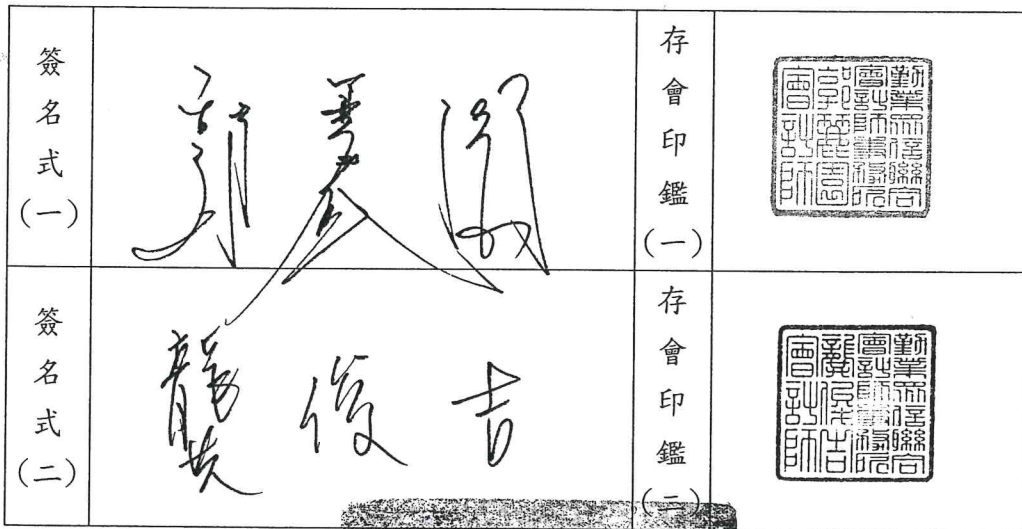 簽名式(一)
郭麗園
存會印鑑(一)
勤業眾信聯合
會計師事務所
郭麗園
會計師
簽名式(二)
龔俊吉
存會印鑑(二)
勤業眾信聯合
會計師事務所
龔俊吉
會計師